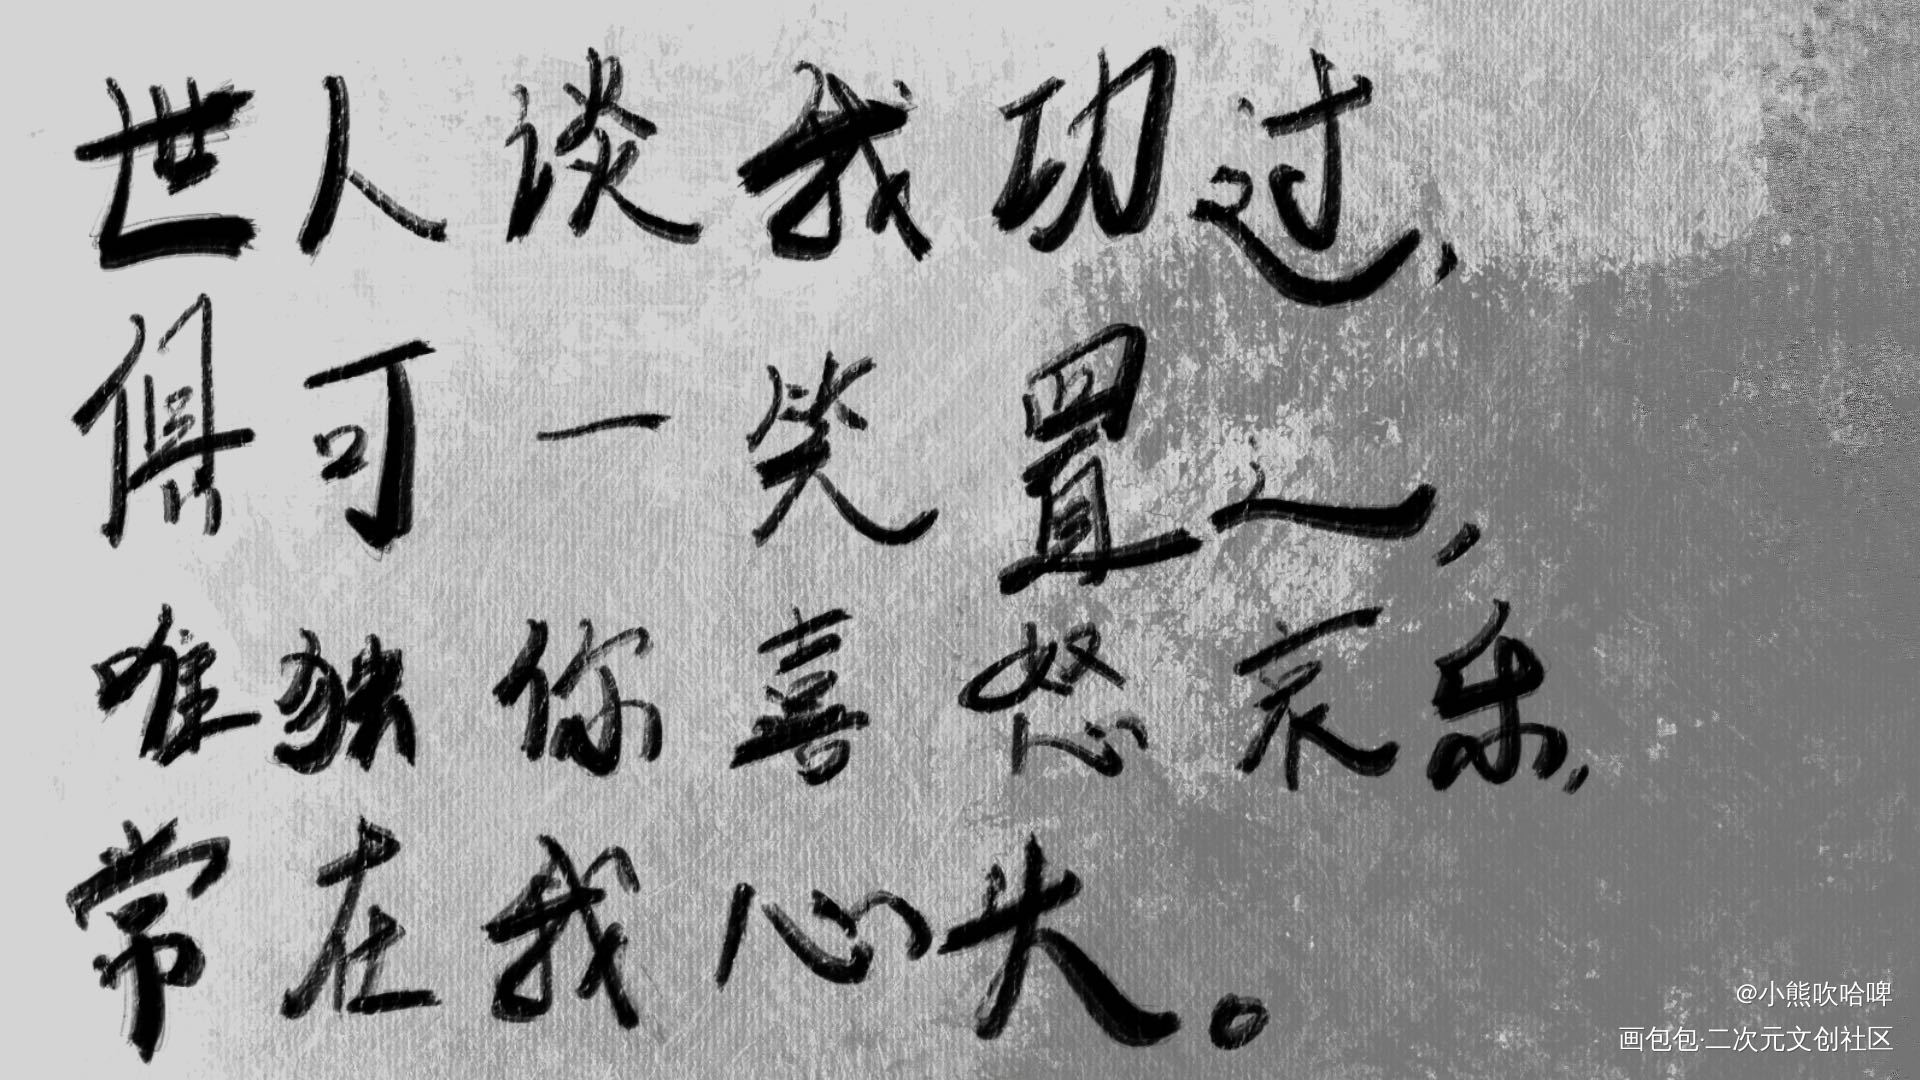 世人谈我功过，
俱可一笑置之，
唯独你喜怒哀乐，
常在我心头。
@小熊吹哈啤
画包包·二次元文创社区